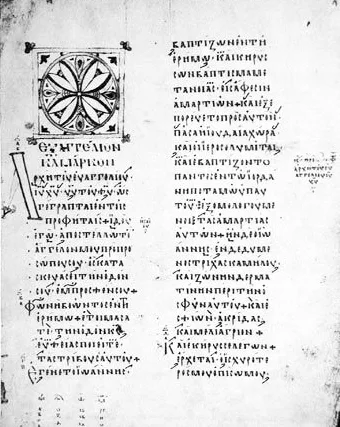 ΕΥΑΓΓΕΛΙΟΝ
ΚΑΤΑ ΜΑΡΚΟΝ
ΑΡΧΗ ΤΟΥ ΕΥΑΓΓΕΛΙΟΥ
ΙΥ ΧΥ ΥΥ ΤΟΥ ΘΥ ΩϹ
ΓΕΓΡΑΠΤΑΙ ΕΝ ΤΟΙϹ
ΠΡΟΦΗΤΑΙϹ + ΙΔΟΥ
ΕΓΩ ΑΠΟϹΤΕΛΛΩ ΤΟΝ
ΑΓΓΕΛΟΝ ΜΟΥ ΠΡΟ ΠΡΟ
ϹΩΠΟΥ ϹΟΥ ΟϹ ΚΑΤΑ
ϹΚΕΥΑϹΕΙ ΤΗΝ ΟΔΟΝ
ϹΟΥ ΕΜΠΡΟϹΘΕΝ ϹΟΥ +
ΦΩΝΗ ΒΟΩΝΤΟϹ ΕΝ ΤΗ
ΕΡΗΜΩ + ΕΤΟΙΜΑϹΑ
ΤΕ ΤΗΝ ΟΔΟΝ ΚΥ
ΕΥΘΕΙΑϹ ΠΟΙΕΙΤΕ
ΤΑϹ ΤΡΙΒΟΥϹ ΑΥΤΟΥ +
ΕΓΕΝΕΤΟ ΙΩΑΝΝΗϹ
ΒΑΠΤΙΖΩΝ ΕΝ ΤΗ
ΕΡΗΜΩ ΚΑΙ ΚΗΡΥϹ
ϹΩΝ ΒΑΠΤΙϹΜΑ ΜΕ
ΤΑΝΟΙΑϹ ΕΙϹ ΑΦΕϹΙΝ
ΑΜΑΡΤΙΩΝ ΚΑΙ ΕΞΕ
ΠΟΡΕΥΕΤΟ ΠΡΟϹ ΑΥΤΟΝ
ΠΑϹΑ Η ΙΟΥΔΑΙΑ ΧΩΡΑ
ΚΑΙ ΟΙ ΙΕΡΟϹΟΛΥΜΙΤΑΙ
ΚΑΙ ΕΒΑΠΤΙΖΟΝΤΟ
ΠΑΝΤΕϹ ΕΝ ΤΩ ΙΟΡΔΑ
ΝΗ ΠΟΤΑΜΩ ΥΠ ΑΥ
ΤΟΥ ΕΞΟΜΟΛΟΓΟΥΜΕ
ΝΟΙ ΤΑϹ ΑΜΑΡΤΙΑϹ
ΑΥΤΩΝ + ΗΝ ΔΕ Ο ΙΩ
ΑΝΝΗϹ ΕΝΔΕΔΥΜΕ
ΝΟϹ ΤΡΙΧΑϹ ΚΑΜΗΛΟΥ
ΚΑΙ ΖΩΝΗΝ ΔΕΡΜΑ
ΤΙΝΗΝ ΠΕΡΙ ΤΗΝ
ΟϹΦΥΝ ΑΥΤΟΥ + ΚΑΙ Ε
ϹΘΙΩΝ ΑΚΡΙΔΑϹ
ΚΑΙ ΜΕΛΙ ΑΓΡΙΟΝ +
ΚΑΙ ΕΚΗΡΥϹϹΕ ΛΕΓΩΝ +
ΕΡΧΕΤΑΙ Ο ΙϹΧΥΡΟΤΕ
ΡΟϹ ΜΟΥ ΟΠΙϹΩ ΜΟΥ